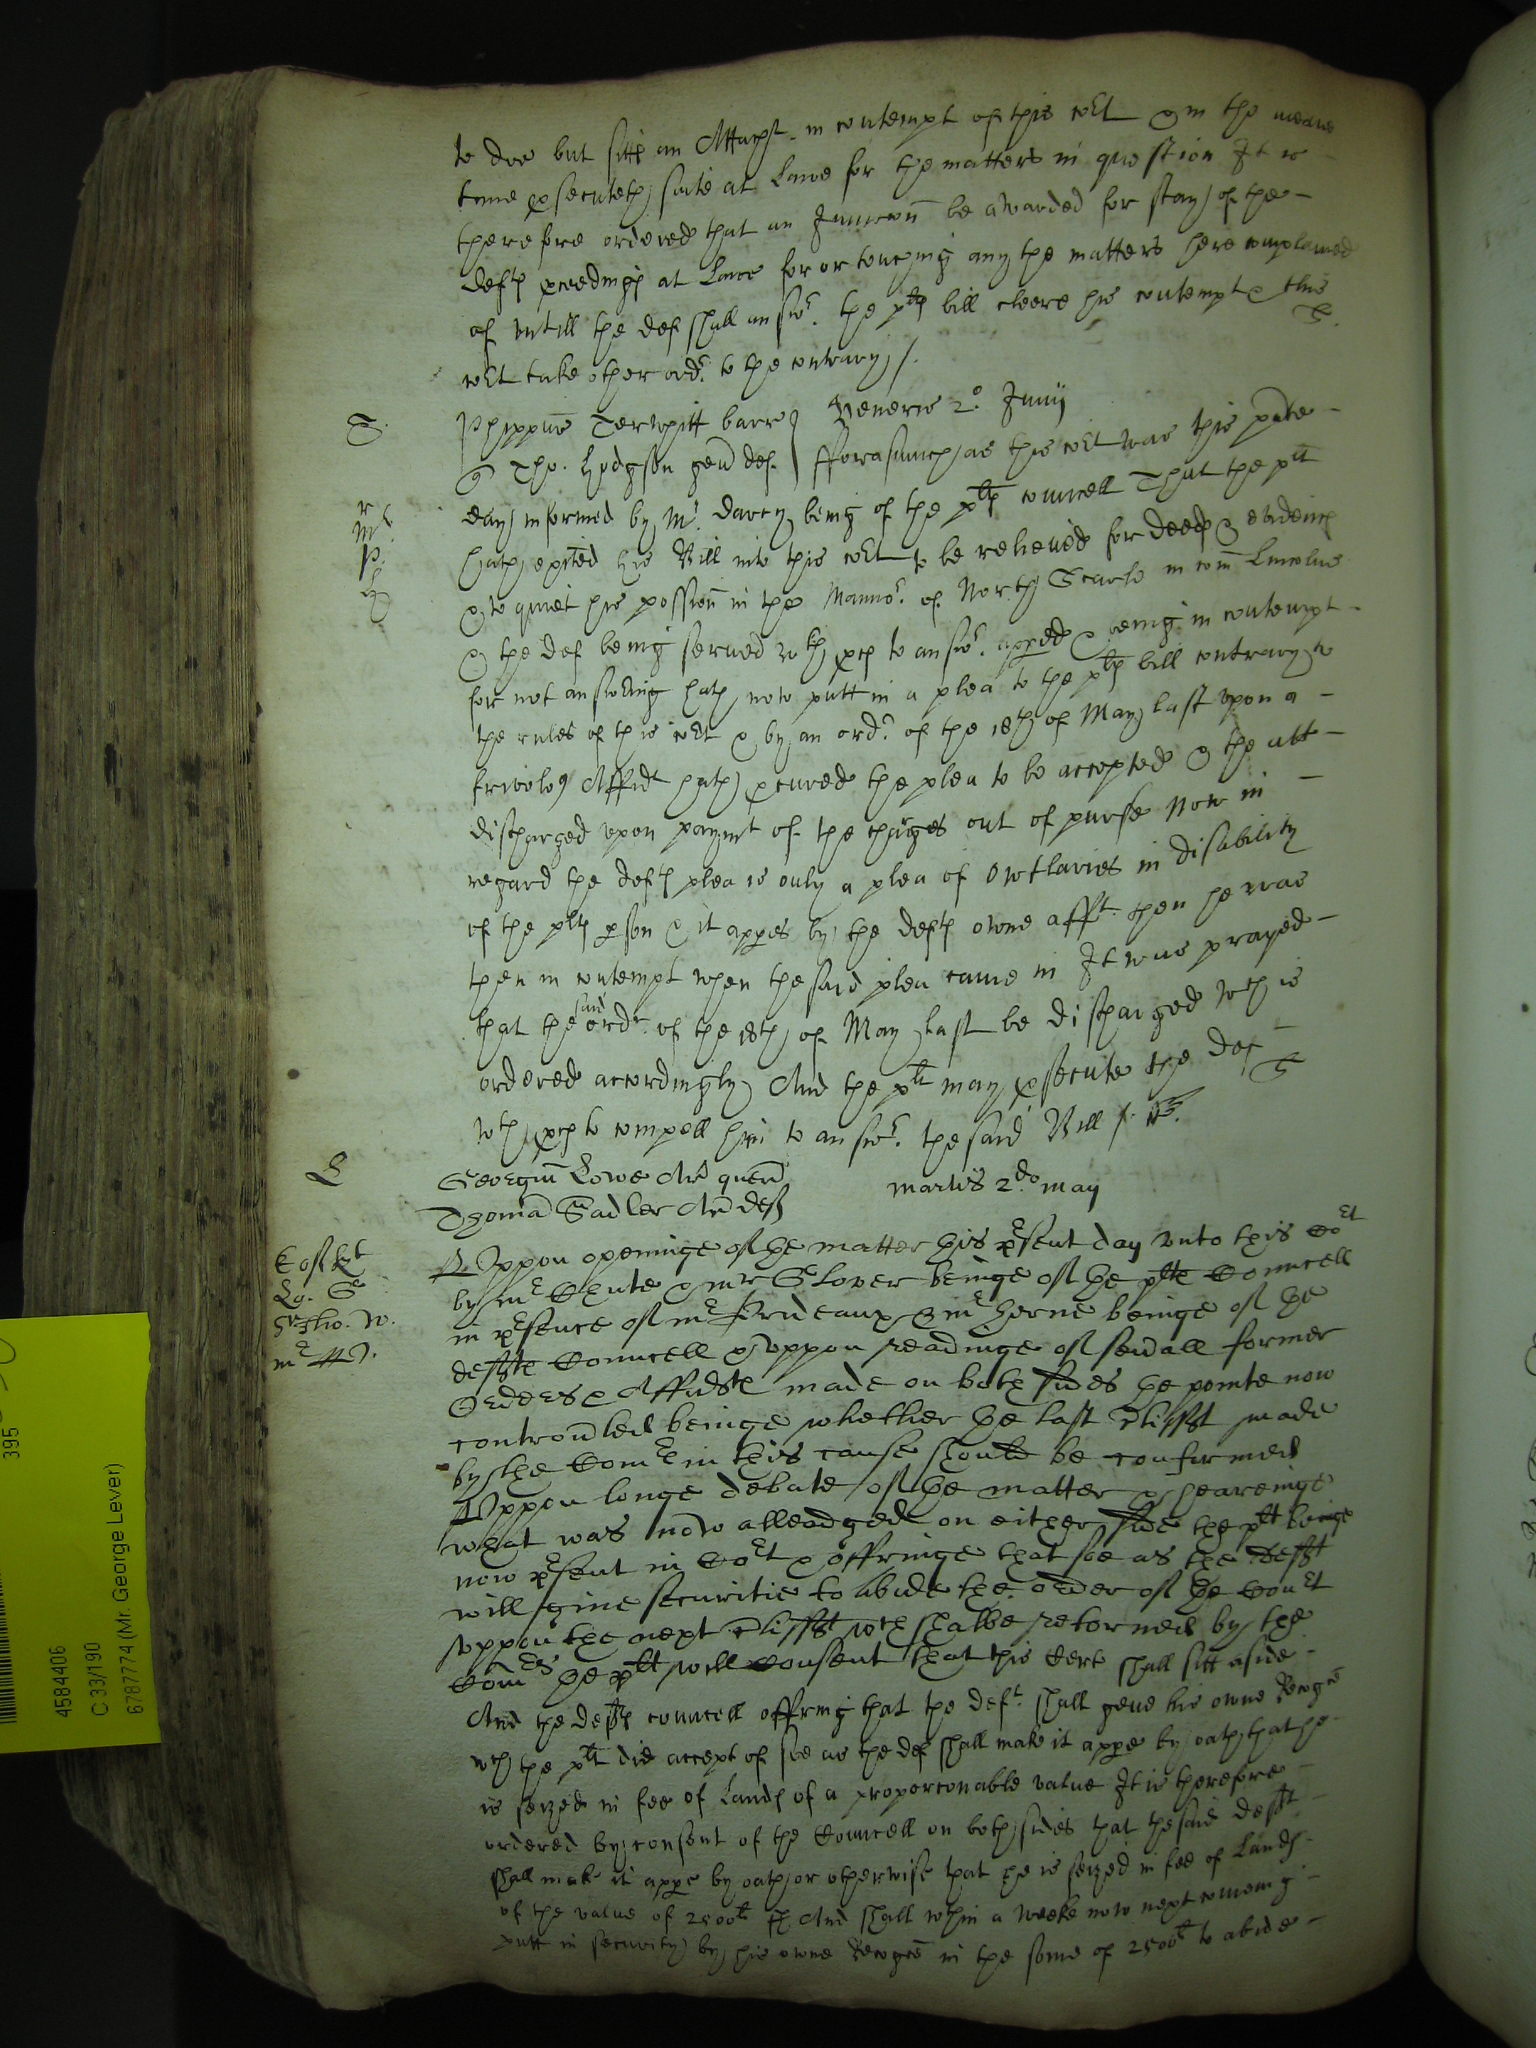 to doe but sitts an Attachmt in contempt of this cort & in the meane
tyme psecuteth suite at Lawe for the matters in question It is
therefore ordered that an Iniuncon be awarded for stay of the
defts pceedings at Lawe for or touching any the matters here complained
of vntill the def shall answr. the plts bill cleere his contempt & this
cort take other ordr. to the contrary /.
T.
Phippus Terwhitt barr
Veneris 2o Junij
& Tho. Hodgson gen def.
fforasmuch as this cort was this pnte
day informed by Mr. Darcy being of the plts councell That the plt
hath exited his Bill into this cort to be relieued for deeds & evidences
& to quiet his possion in the Mannor. of North Scarle in com Lincolne
& the def being serued wth pces to answr. appeed & being in contempt
for not answering hath now putt in a plea to the plts bill contrary to
the rules of this cort & by an ordr. of the 18th of May last vpon a
frivolous Affidt hath pcured the plea to be accepted & the att
discharged vpon paymt of the charges out of purse Now in
regard the defts plea is only a plea of Owtlaries in disability
of the plts pson & it appes by the defts owne afft. then he was
then in contempt when the said plea came in It was prayed
that the said ordr. of the 18th of May last be discharged wch is
ordered accordingly And the plt may psecute the def
wth pces to compell him to answr. the said Bill /.
L
Georgius Lowe Ar quer
Martis 2do May
Thoma Sadler Ar def
Vppon openinge of the matter this psent day vnto this Cort
by mr Chute & mr Glover beinge of the plts Councell
in psence of mr Prideaux & mr Herne beinge of the
defts Councell & vppon readinge of seuall former
Orders & Affidts made on both sides the pointe now
controuled beinge whether the last made
by the Comrs in this cause should be confirmed
Vppon longe debate of the matter & heareinge
what was now alleadged on either side the plt beinge
now psent in Cort & offringe that soe as the deft
will giue securitie to abide the order of the Court
vppon the next wch shalbe retorned by the
Comrs the plt will consent that this Cert shall sitt aside
And the defts councell offring that the deft. shall geue his owne Recogce
wch the plt did accept of soe as the def shall make it appe by oath that he
is seized in fee of Lands of a proporconable value It is therefore
ordered by consent of the Councell on both sides that the said deft
shall make it appe by oath or otherwise that he is seized in fee of Lands
of the value of 2500li And shall wthin a weeke now next comeing
putt in security by his owne Recogce in the some of 2500li to abide
395
4584406
C 33/190
6787774 (Mr. George Lever)